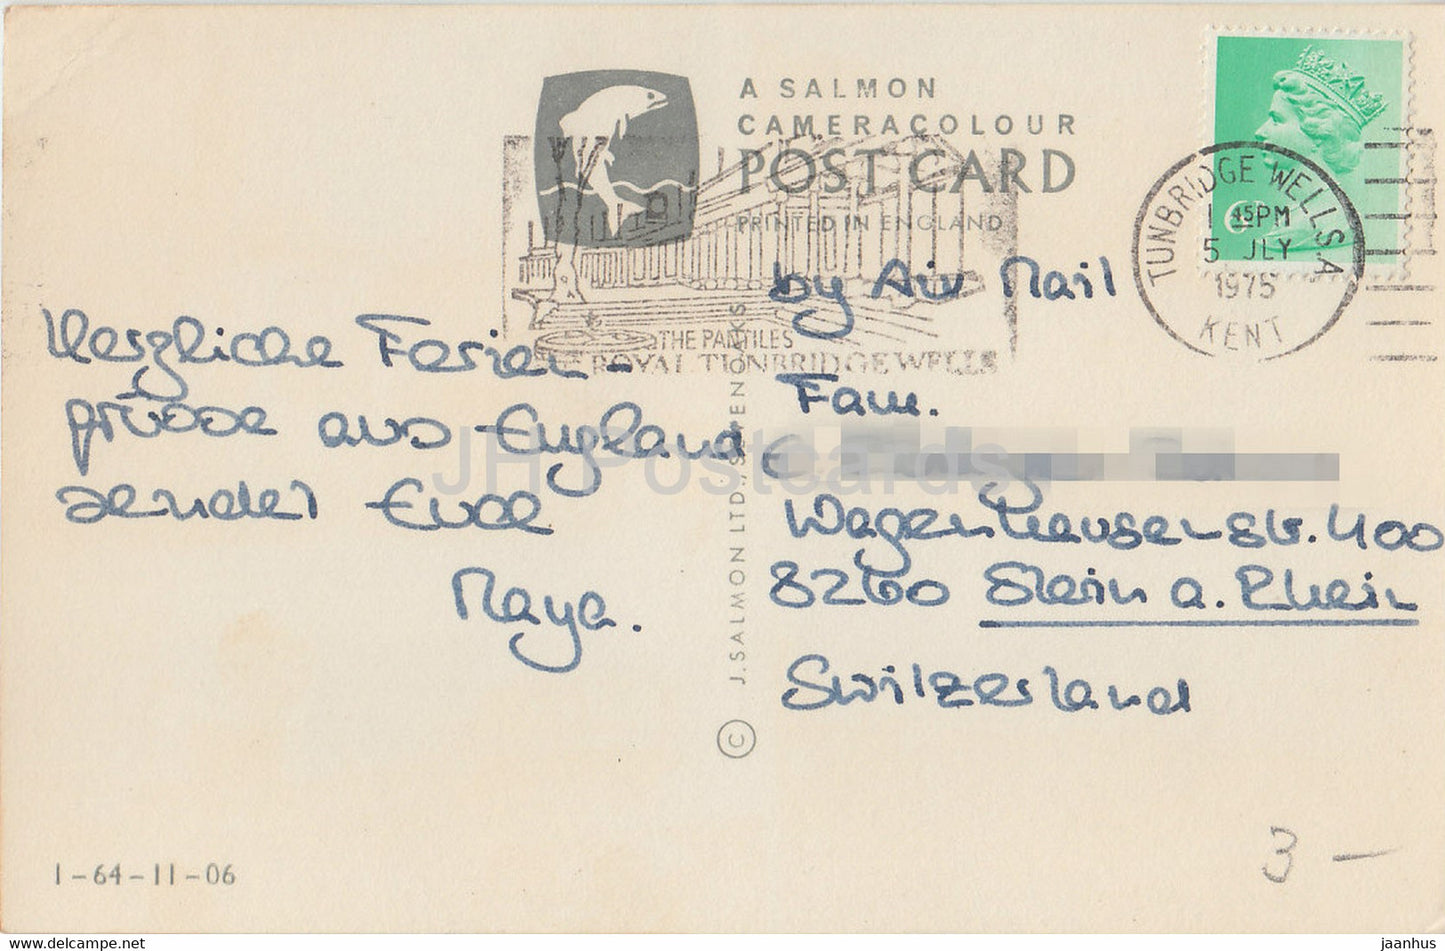 A SALMON
CAMERACOLOUR
POST CARD
PRINTED IN ENGLAND
TUNBRIDGE WELLS A
1 45PM
5 JLY
1975
KENT
THE PANTILES
ROYAL TUNBRIDGE WELLS
Herzliche Ferien-
grüsse aus England
sendet Euce
Maya.
by Air Mail
Fam.
Wagenhauserstr. 400
8260 Stein a. Rhein
Switzerland
© J. SALMON LTD./SEVENOAKS
JH Postcards
1-64-11-06
3 —
www.delcampe.net
jaanhus